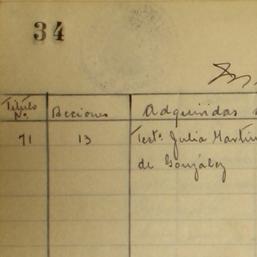 34
Título Nº. Acciones Adquiridas
71 13 Testª. Julia Martín
de González